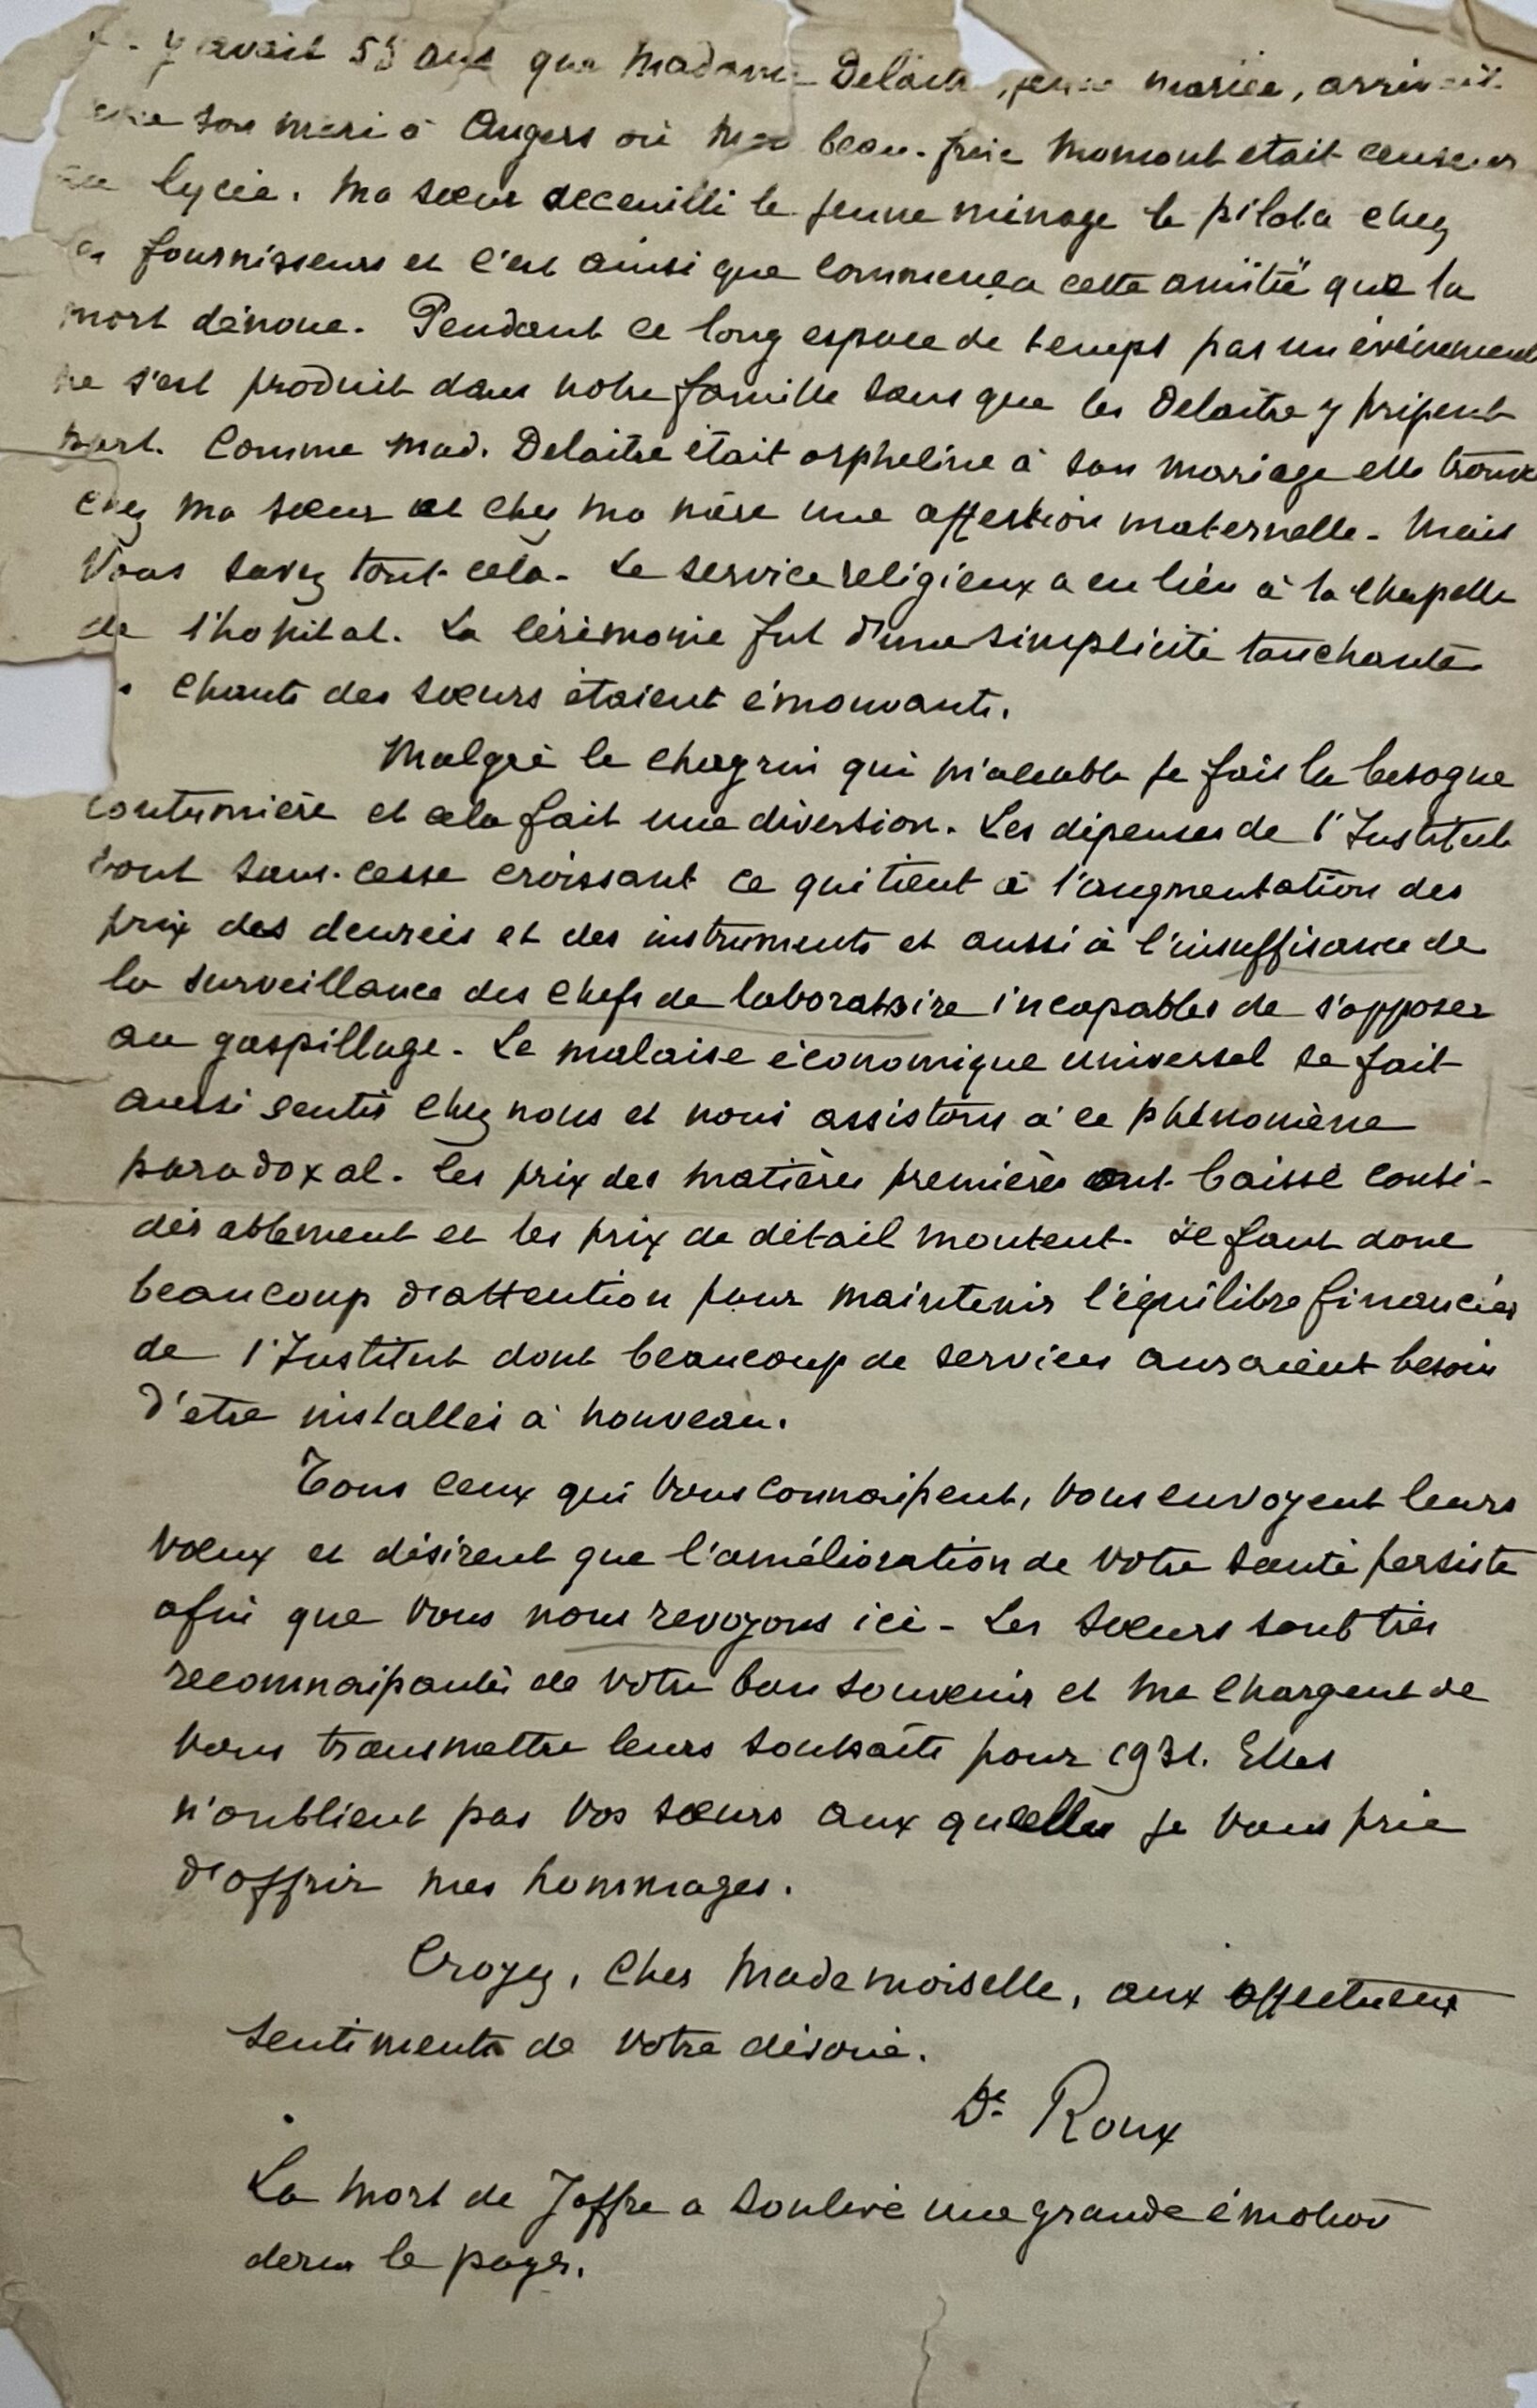 y avait 55 ans que Madame Delaitre, jeune mariée, arrivait
avec son mari à Angers où mon beau-frère Momont était censeur
au lycée. Ma sœur accueilli le jeune ménage le pilota chez
les fournisseurs et c'est ainsi que commença cette amitié que la
mort dénoue. Pendant ce long espace de temps pas un événement
ne s'est produit dans notre famille sans que les Delaitre y prissent
part. Comme Mad. Delaitre était orpheline à son mariage elle trouva
chez ma sœur et chez ma mère une affection maternelle. Mais
vous savez tout cela. Le service religieux a eu lieu à la chapelle
de l'hopital. La cérémonie fut d'une simplicité touchante
chants des sœurs étaient émouvants.
Malgré le chagrin qui m'accable je fais la besogne
coutumière et cela fait une diversion. Les dépenses de l'Institut
vont sans cesse croissant ce qui tient à l'augmentation des
prix des denrées et des instruments et aussi à l'insuffisance de
la surveillance des chefs de laboratoire incapables de s'opposer
au gaspillage. Le malaise économique universel se fait
aussi sentir chez nous et nous assistons à ce phénomène
paradoxal. Les prix des matières premières ont baissé consi-
dérablement et les prix de détail montent. Il faut donc
beaucoup d'attention pour maintenir l'équilibre financier
de l'Institut dont beaucoup de services auraient besoin
d'etre installés à nouveau.
Tous ceux qui vous connaissent, vous envoyent leurs
vœux et désirent que l'amélioration de votre santé persiste
afin que vous nous revoyons ici. Les sœurs sont très
reconnaissantes de votre bon souvenir et me chargent de
vous transmettre leurs souhaits pour 1931. Elles
n'oublient pas vos sœurs aux quelles je vous prie
d'offrir mes hommages.
Croyez, cher Mademoiselle, aux affectueux
sentiments de votre dévoué.
Dr Roux
La mort de Joffre a soulevé une grande émotion
dans le pays.